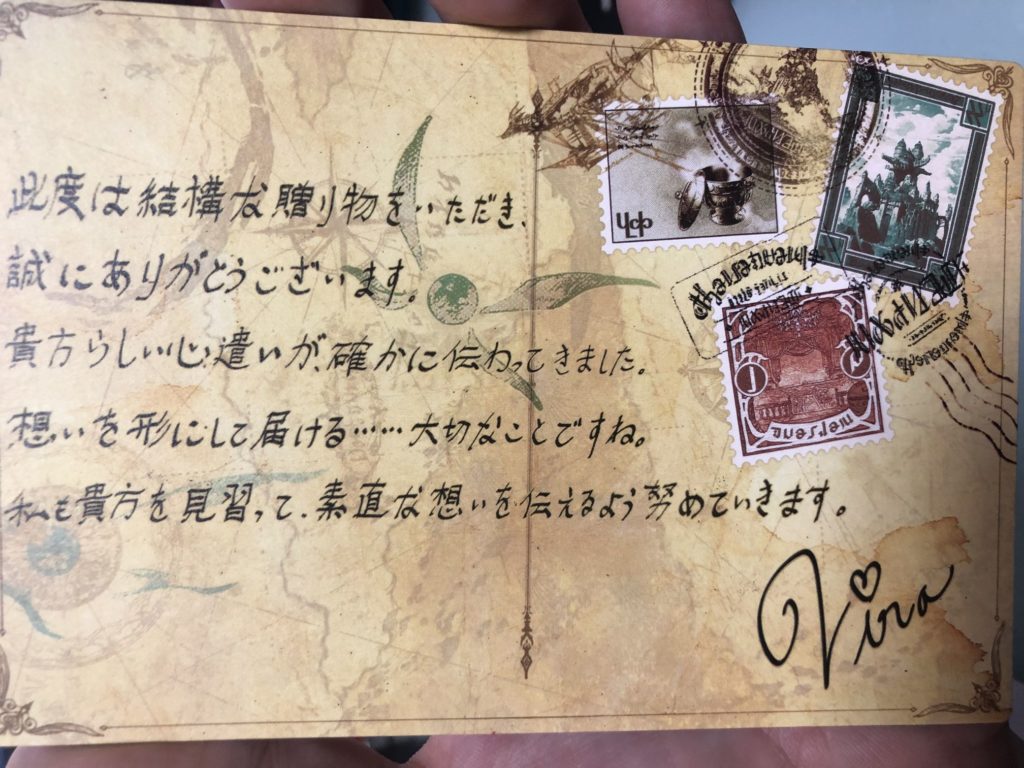 此度は結構な贈り物をいただき、
誠にありがとうございます。
貴方らしい心遣いが、確かに伝わってきました。
想いを形にして届ける……大切なことですね。
私も貴方を見習って、素直な想いを伝えるよう努めていきます。
Vira